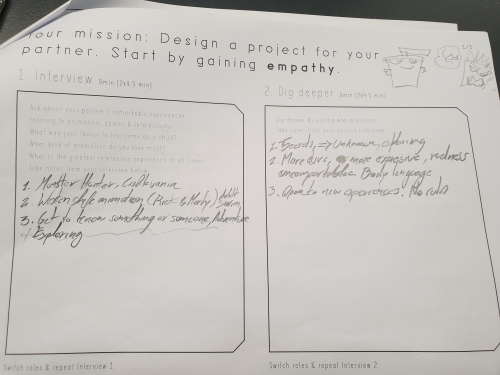 Your mission: Design a project for your
partner. Start by gaining empathy.
1. Interview 9min (2x4.5 min)
Ask about your partner's remarkable experiences
relating to animation, games & interactivity.
What was your favourite toy/game as a child?
What kind of animation do you love most?
What is the greatest interactive experience of all times?
Take notes from your interview below
1. Monster Hunter, Castlevania
2. Western style animation (Rick & Morty) Adult Swim
3. Get to know something or someone, Adventure
Exploring
Switch roles & repeat Interview 1
2. Dig deeper 9min (2x4.5 min)
Dig deeper by asking why questions.
Take notes from your second interview
1. Beards, => Unknown, exploring
2. More dire, more expressive, rudeness
uncomfortable. Body language
3. Open to new experiences. No rules
Switch roles & repeat Interview 2